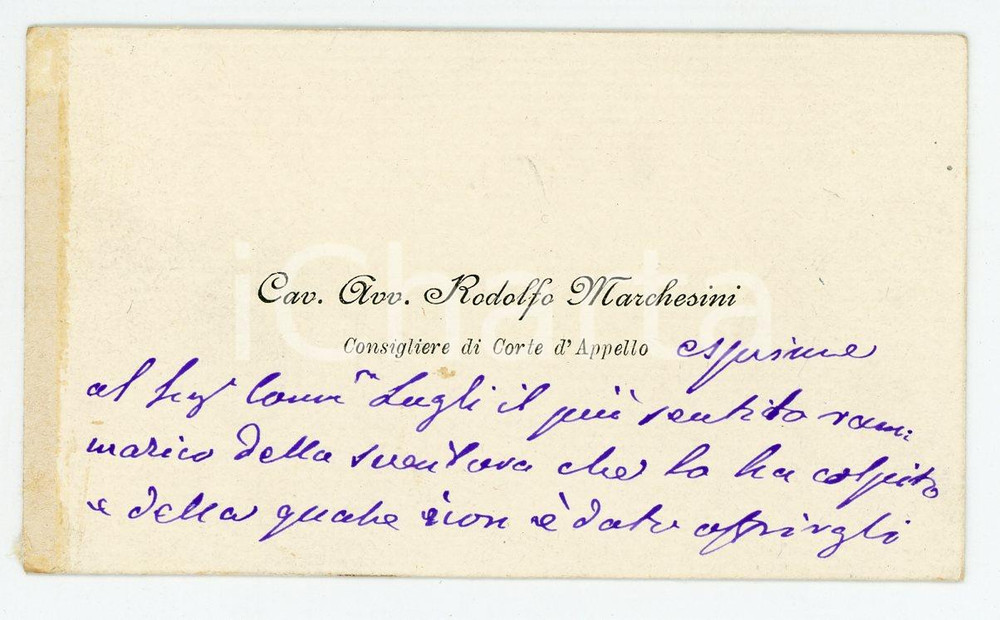 iCharta
Cav. Avv. Rodolfo Marchesini
Consigliere di Corte d'Appello esprime
al Sig Comm Lugli il più sentito ram:
marico della sventura che lo ha colpito
e della quale non è dato offrirgli